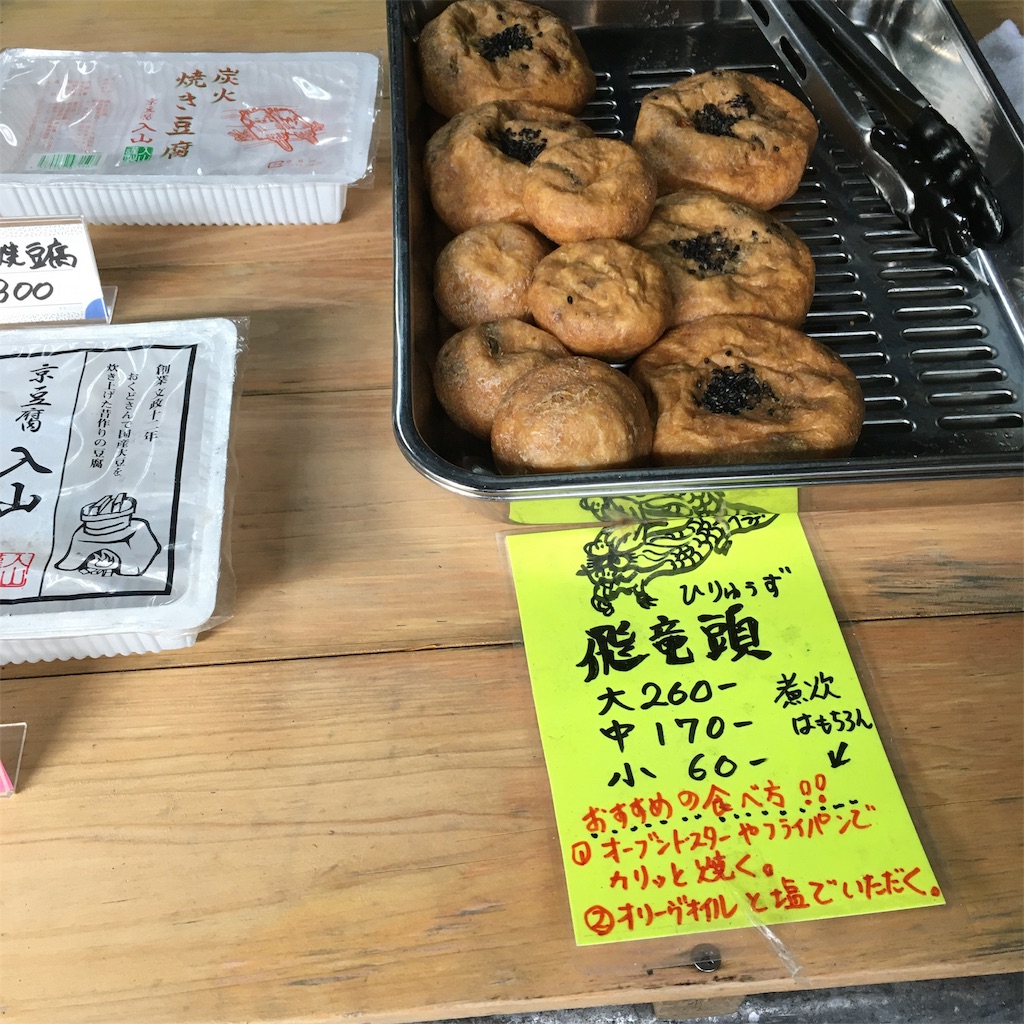 炭火
焼き豆腐
京豆腐
入山
焼豆腐
300
創業文政十二年
おくどさんで国産大豆を
炊き上げた昔作りの豆腐
京豆腐
入山
入山
ひりゅうず
飛竜頭
大 260-
中 170-
小 60-
煮炊
はもちろん
↙
おすすめの食べ方!!
① オーブントースターやフライパンで
カリッと焼く。
② オリーヴオイルと塩でいただく。